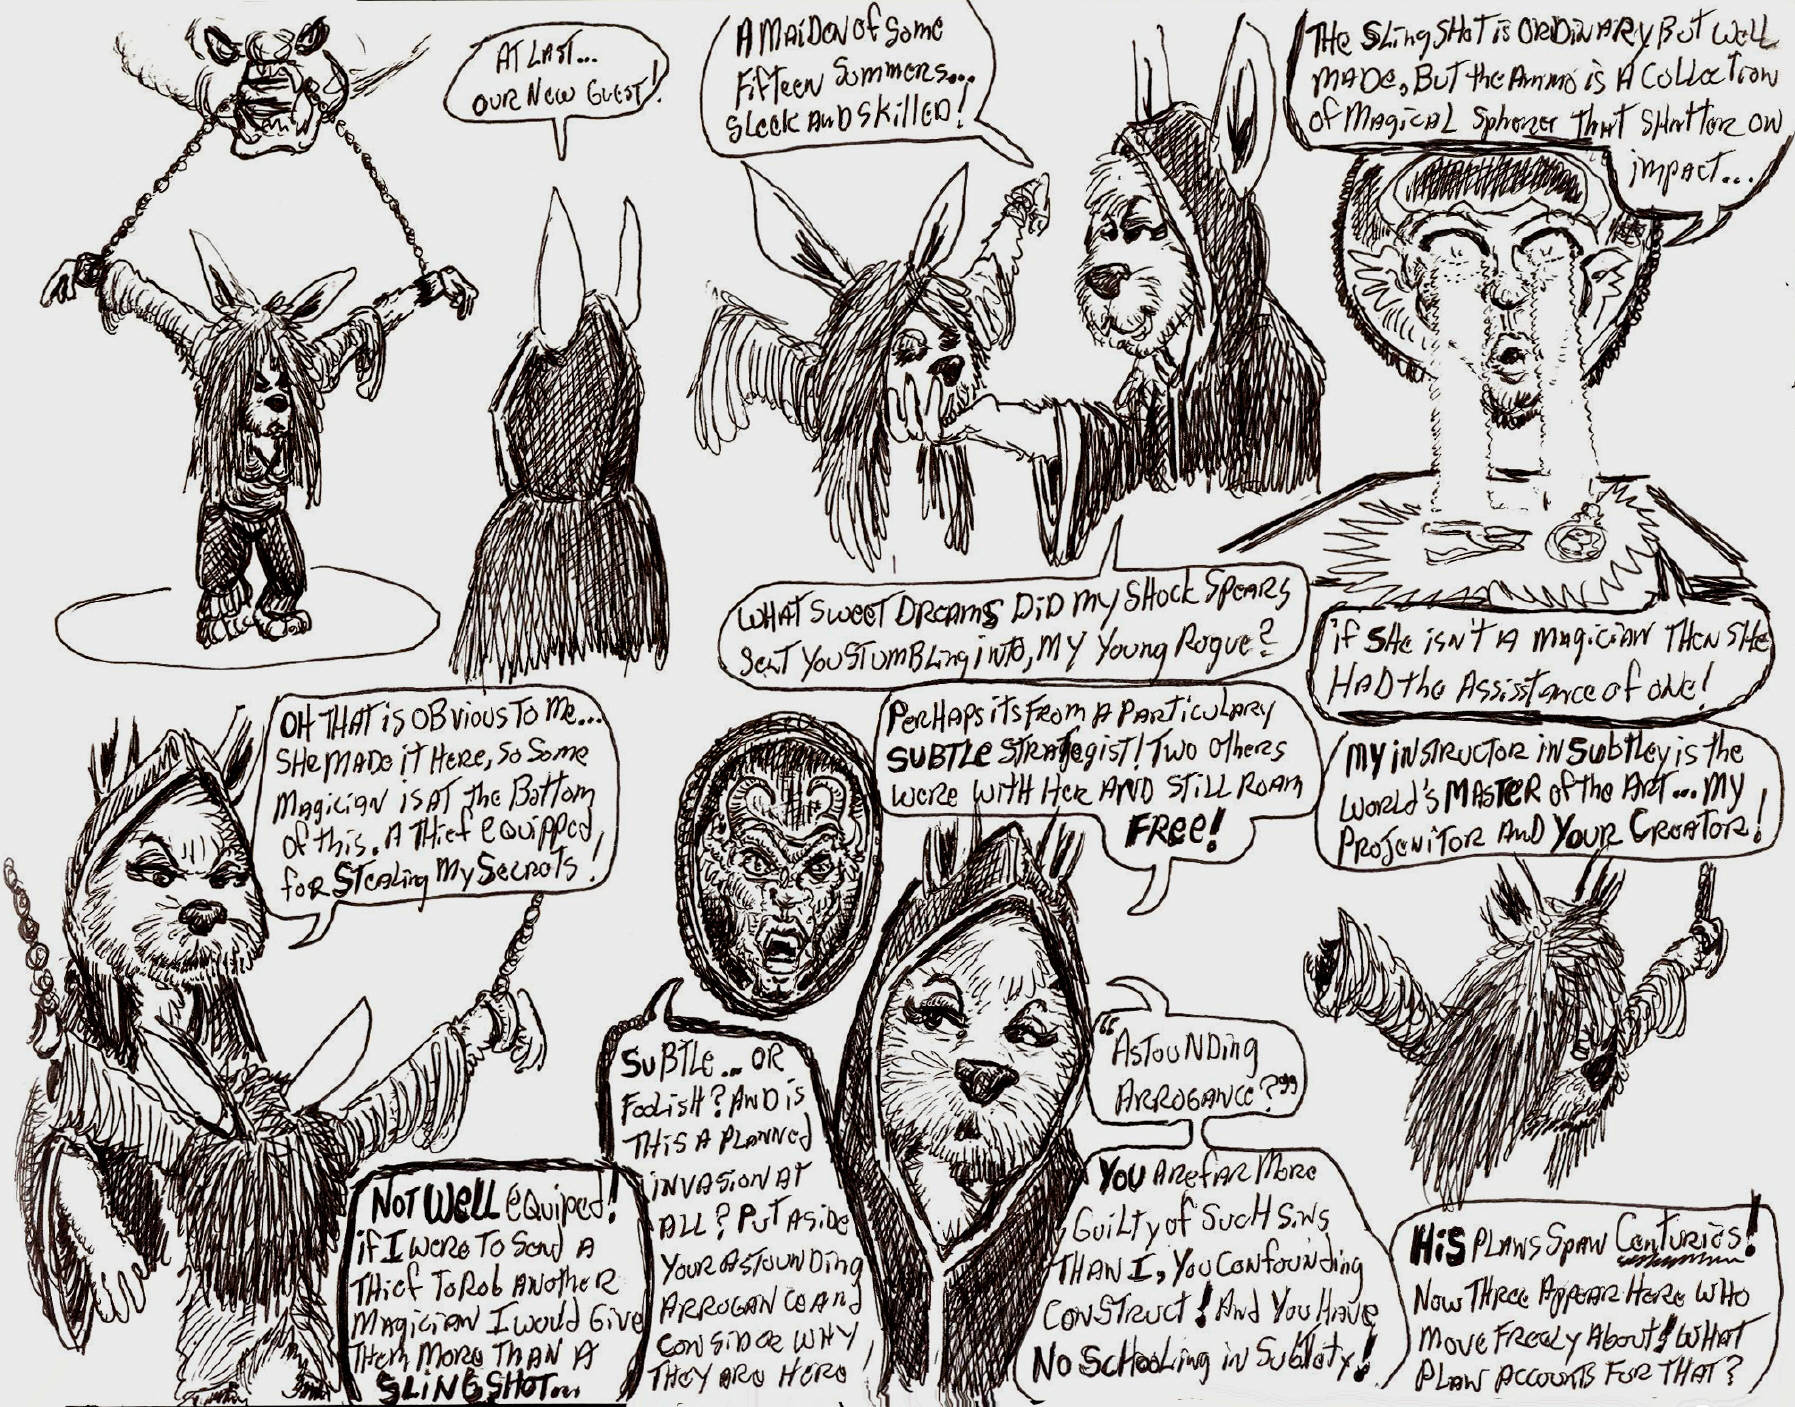 AT LAST...
OUR NEW GUEST!
A MAIDEN of Some
Fifteen Summers...
Sleek AND SKILLED!
THE SLingSHOT is ORDiNARY BuT Well
MADE, BUT the Ammo is A Collection
of MAgiCAL Spheres THAT SHATTER ON
impACT...
WHAT SWEET DREAMS DiD my SHOCK SPEARS
SENT YOU STUMBLing iNTO, MY Young Rogue?
if SHe isn't A magiciAN THEN SHe
HAD the Assisstance of oNe!
OH THAT iS OBVIOUS TO Me...
SHe MADe iT HeRe, So Some
MagiciAN iS AT the BoTTom
of this. A THief equipped
foR STealing My SecReTs!
NoT Well equiped!
if I WeRe To SeND A
THief To Rob ANOTHeR
MagiciAN I Would Give
THem MoRe THAN A
SLiNGSHOT...
PeRHAPS iTS FRom A PARTiCULARY
SUBTLe STRATegisT! Two OTHeRS
WeRe WiTH HeR AND STiLL RoAM
FRee!
SUBTLe... OR
FooLiSH? AND iS
THiS A PLANNeD
iNVASiON AT
ALL? PuT ASiDe
YouR ASTouNDing
ARROGANCe AND
CONSiDeR WHY
THeY ARe HeRe!
"ASTouNDing
ARROGANCe?"
You ARe fAR MoRe
GuiLTy of SuCH SiNS
THAN I, You CoNfouNDing
CoNSTRuCT! AND You HAVe
No SCHooLing iN SuBLeTy!
My iNSTRuCToR iN SuBTLey iS the
WoRLD'S MASTeR of the ART... My
PRoJeNiToR AND YouR CReAToR!
HiS PLANS SPAN CeNTuRieS!
Now THRee APPeAR HeRe WHo
Move FReeLy ABouT! WHAT
PLAN ACCouNTS FoR THAT?